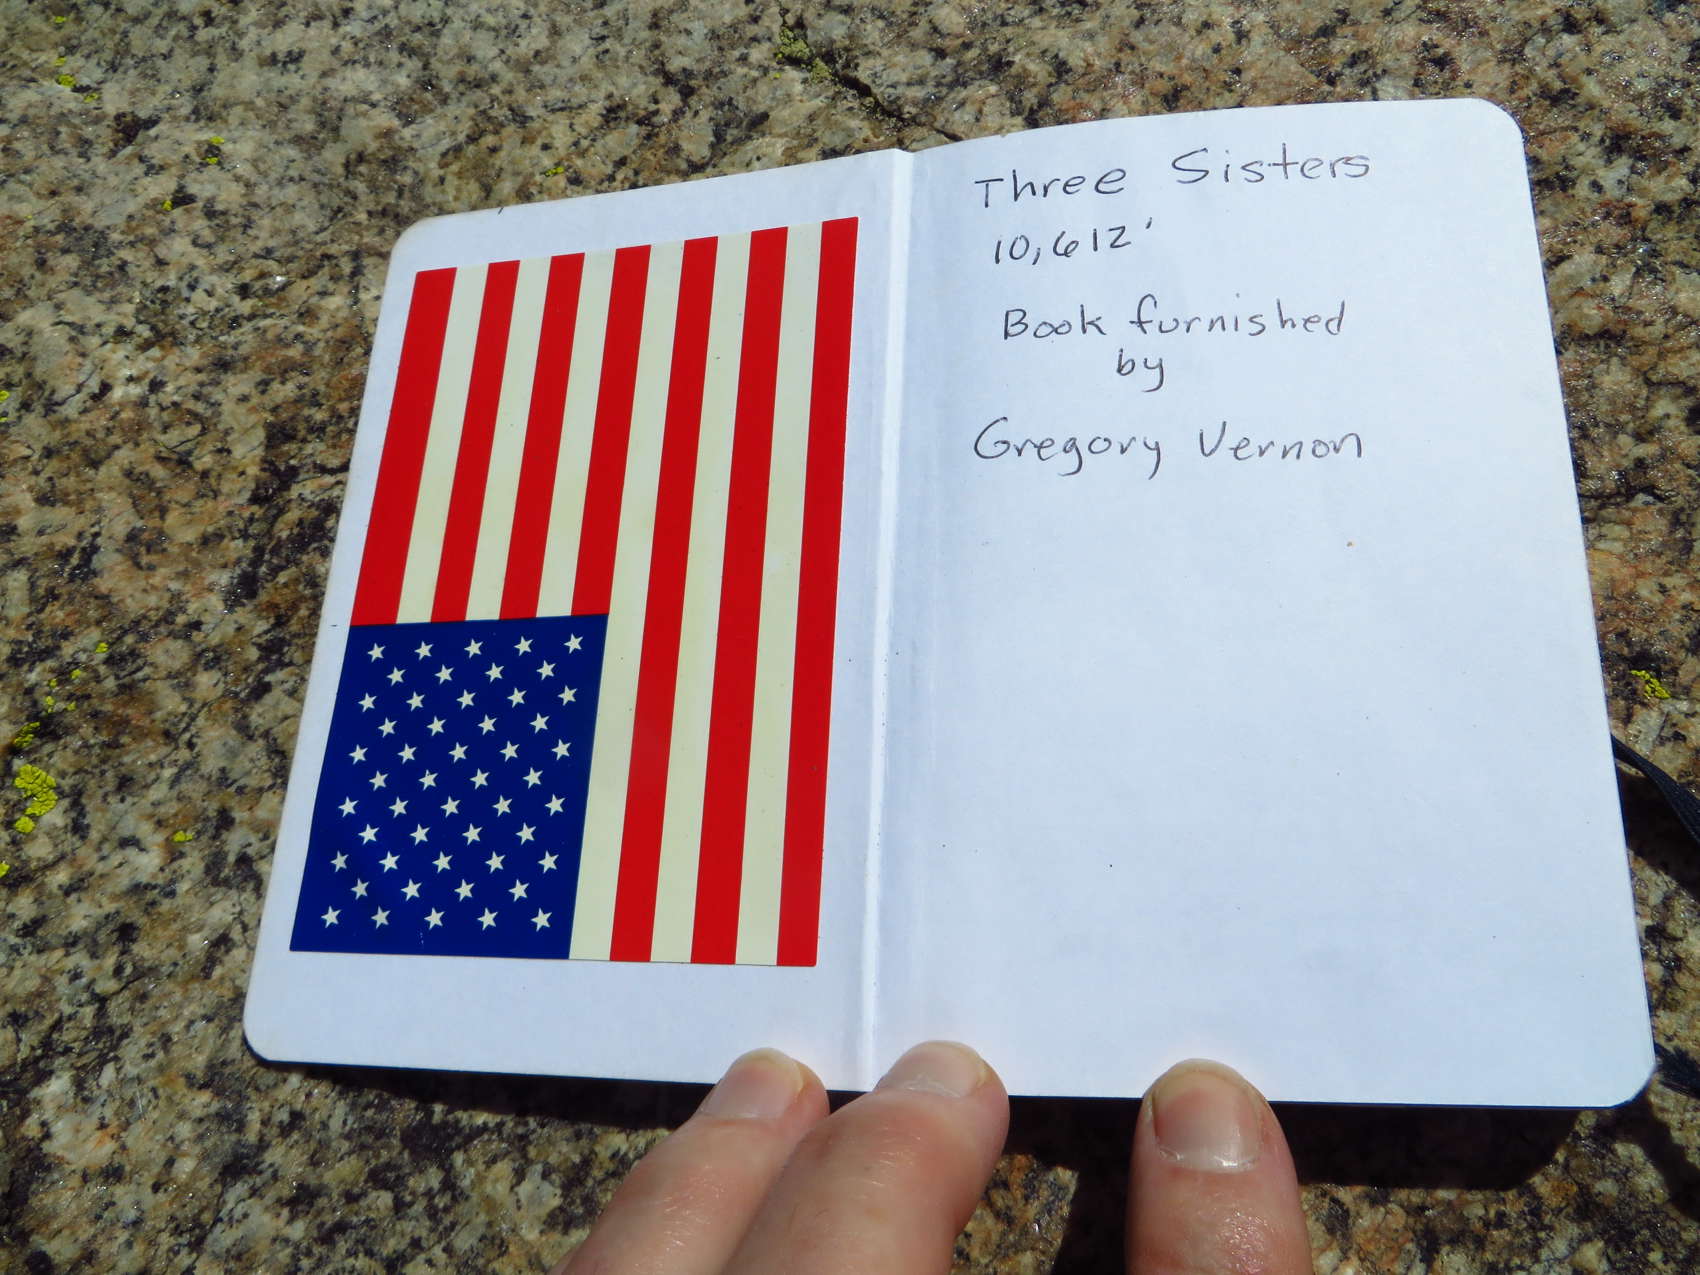 Three Sisters
10,612'
Book furnished
by
Gregory Vernon